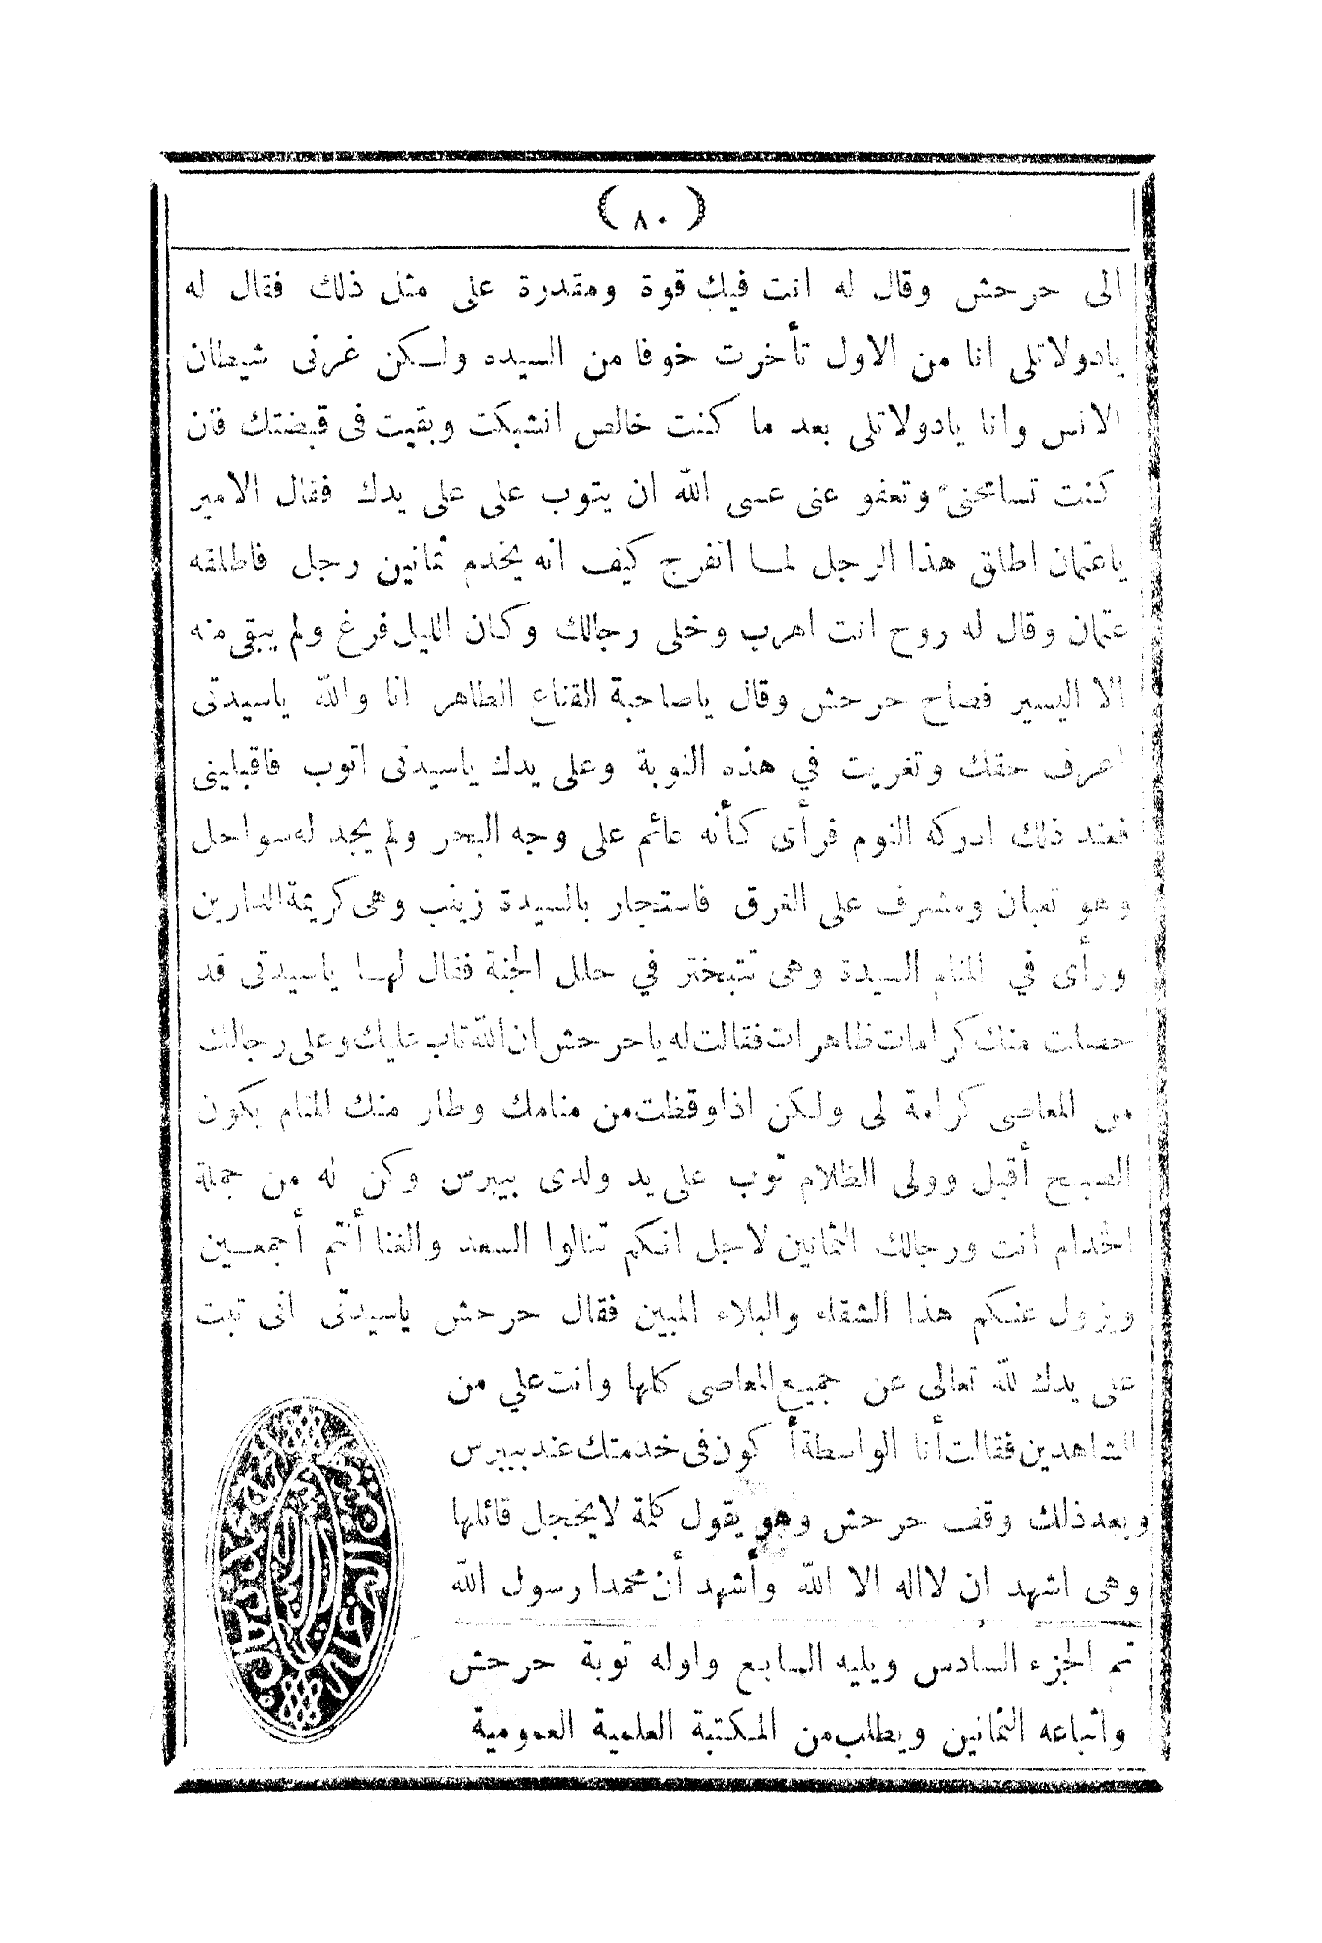 ( ٨٠ )
الى حرحش وقال له انت فيك قوة ومقدرة على مثل ذلك فقال له
يادولاتلى انا من الاول تأخرت خوفا من السيده ولكن غرنى شيطان
الانس وانا يادولاتلى بعد ما كنت خالص انشبكت وبقيت فى قبضتك فان
كنت تسامحنى وتعفو عنى عسى الله ان يتوب على على يدك فقال الامير
ياعثمان اطلق هذا الرجل لما اتفرج كيف انه يخدم ثمانين رجل فاطلقه
عثمان وقال له روح انت اهرب وخلى رجالك وكان الليل فرغ ولم يبقى منه
الا اليسير فصاح حرحش وقال ياصاحبة القناع الطاهر انا والله ياسيدتى
اعرف حقك وتغريت في هذه النوبة وعلى يدك ياسيدتى اتوب فاقبلينى
فعند ذلك ادركه النوم فرأى كأنه عائم على وجه البحر ولم يجد له سواحل
وهو تعبان ومشرف على الغرق فاستجار بالسيدة زينب وهى كريمة الدارين
ورأى في المنام السيدة وهى تتبختر في حلل الجنة فقال لها ياسيدتى قد
حصلت منك كرامات ظاهرات فقالت له ياحرحش ان الله تاب عليك وعلى رجالك
من المعاصى كرامة لى ولكن اذا وقظت من منامك وطار منك المنام يكون
الصبح أقبل وولى الظلام توب على يد ولدى بيبرس وكن له من جملة
الخدام انت ورجالك الثمانين لاجل انكم تنالوا السعد والغنا أنتم أجمعين
ويزول عنكم هذا الشقاء والبلاء المبين فقال حرحش ياسيدتى انى تبت
على يدك لله تعالى عن جميع المعاصى كلها وانت علي من
الشاهدين فقالت أنا الواسطة أكون فى خدمتك عند بيبرس
وبعد ذلك وقف حرحش وهو يقول كلمة لا يخجل قائلها
وهى اشهد ان لااله الا الله وأشهد أن محمدا رسول الله
تم الجزء السادس ويليه السابع واوله توبة حرحش
واتباعه الثمانين ويطلب من المكتبة العلمية العمومية